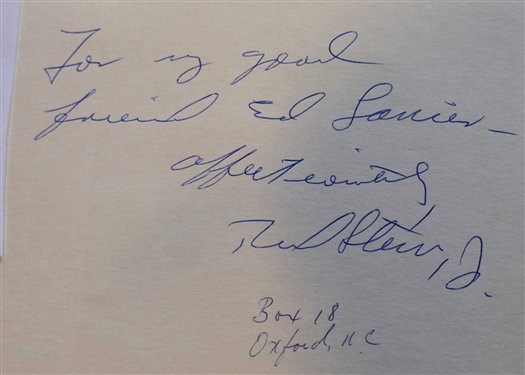 For my good
friend Ed Lanier –
affectionately,
Jr.
Box 18
Oxford, N.C